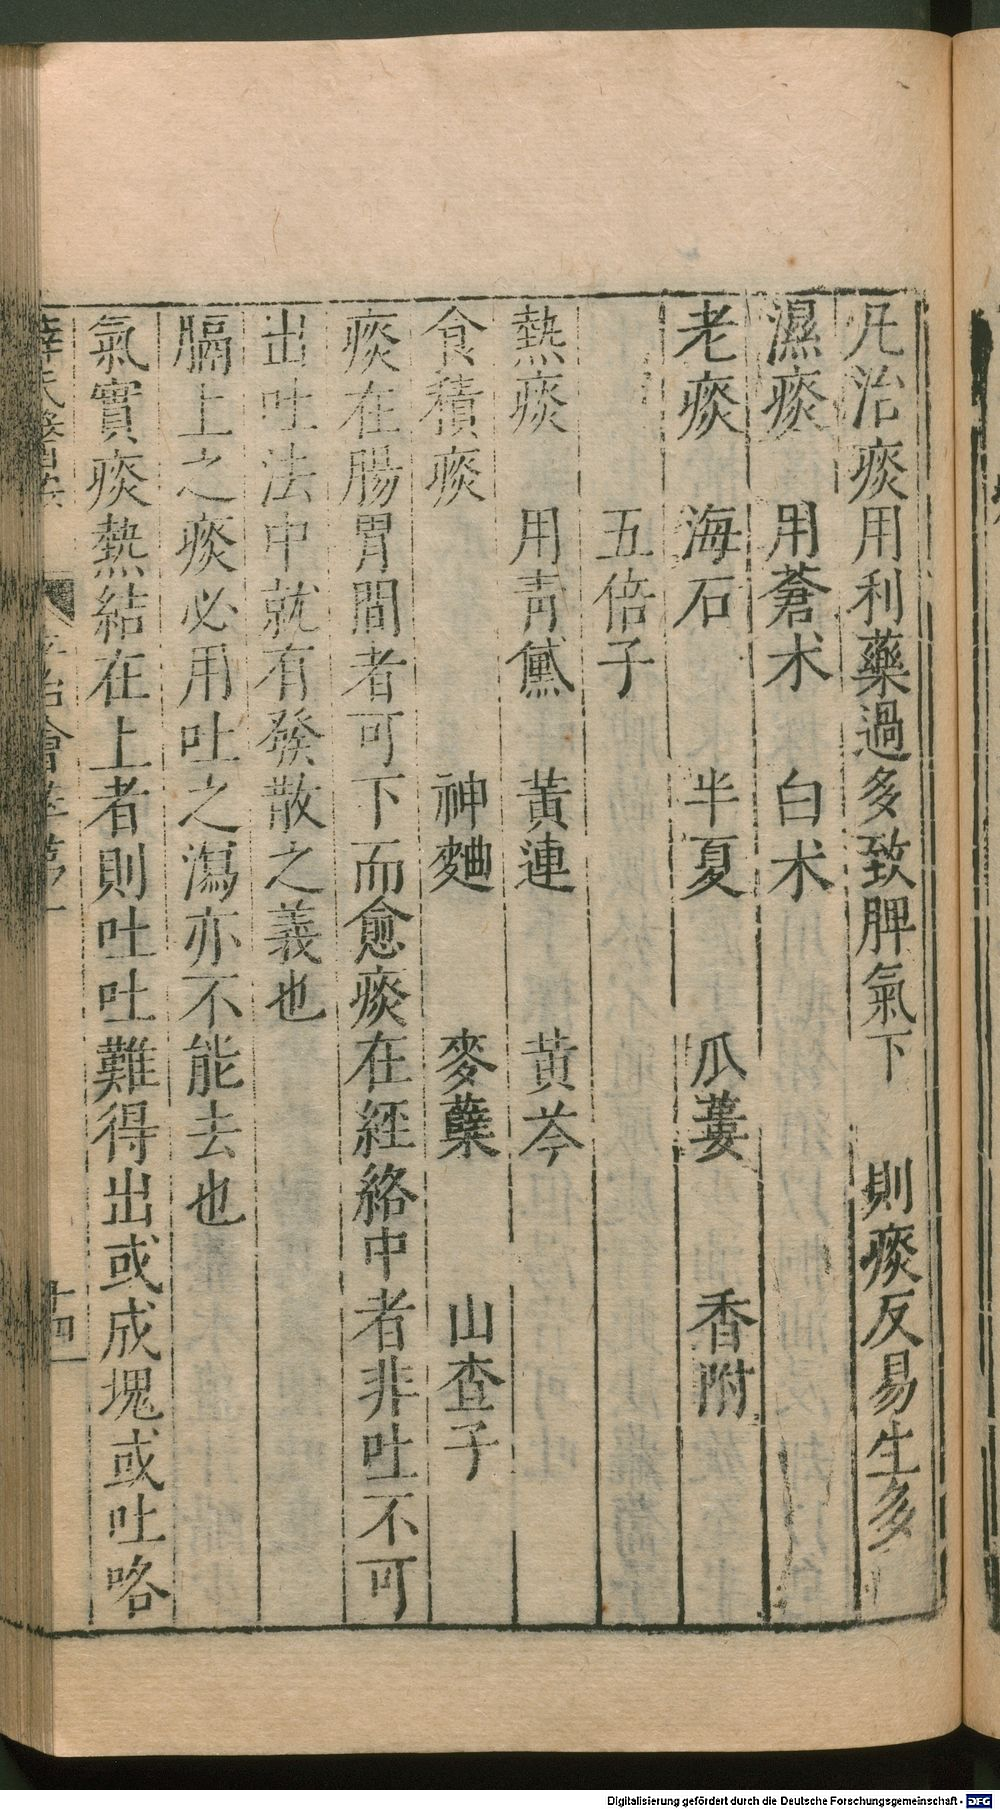 凡治痰用利藥過多致脾氣下　則痰反易生多
濕痰　用蒼术　白术
老痰　海石　半夏　瓜蔞　香附
五倍子
熱痰　用青黛　黃連　黃芩
食積痰　神麯　麥蘗　山查子
痰在腸胃間者可下而愈痰在經絡中者非吐不可
出吐法中就有發散之義也
膈上之痰必用吐之瀉亦不能去也
氣實痰熱結在上者則吐吐難得出或成塊或吐咯
Digitalisierung gefördert durch die Deutsche Forschungsgemeinschaft - DFG